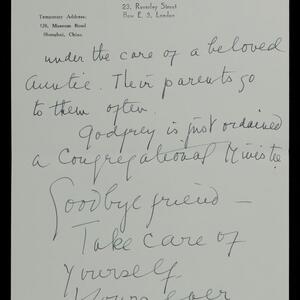 Temporary Address:
128, Museum Road
Shanghai, China.
23, Roverley Street
Bow E. 3, London
under the care of a beloved
Auntie. Their parents go
to them often.
Godfrey is just ordained
a Congregational Ministe
Goodbye friend —
Take care of
Yourself
Yours ever